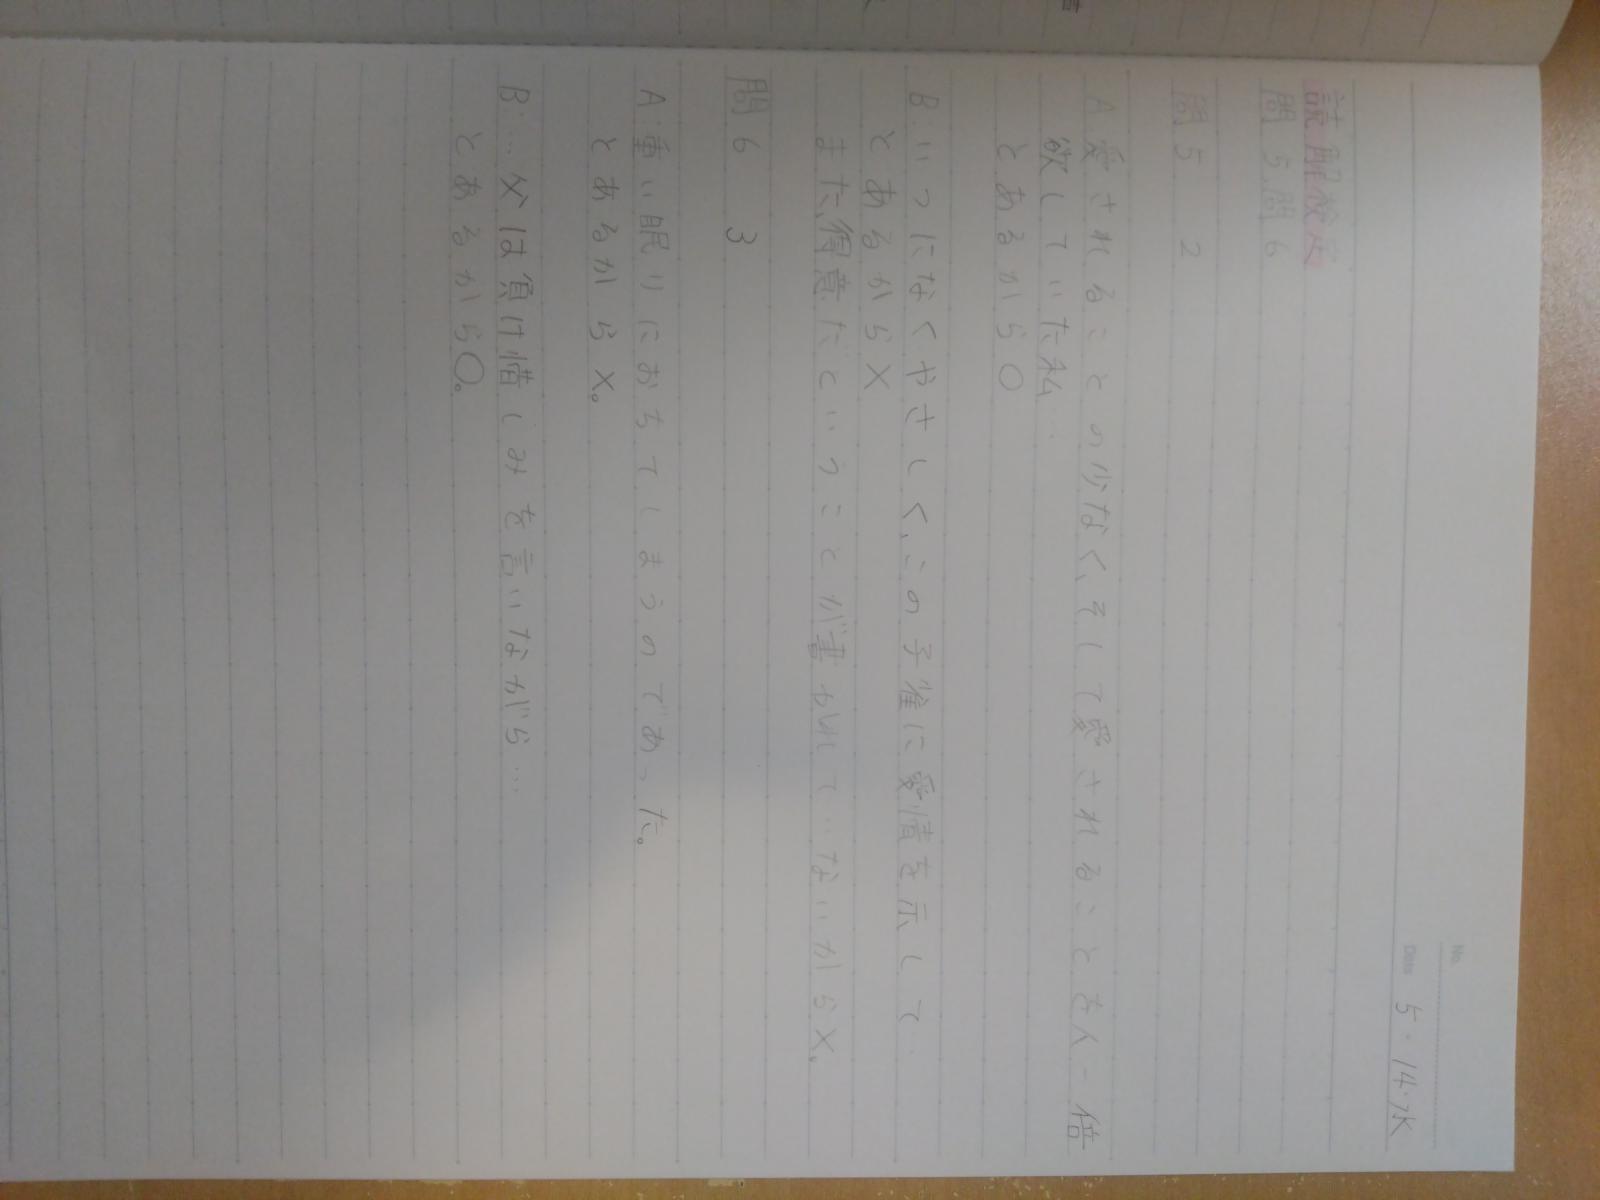 No.
Date 5・14・水
読解検定
問5.問6
問5 2
A 愛されることの少なく、そして愛されることを人一倍
欲していた私…
とあるから○
B.いつになくやさしく、この子雀に愛情を示して…
とあるからX
また、得意だということが書かれて…ないからX。
問6 3
A:重い眠りにおちてしまうのであった。
とあるからX。
B:…父は負け惜しみを言いながら…
とあるから○。